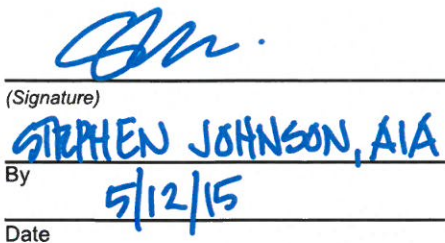 (Signature)
STEPHEN JOHNSON, AIA
By
5/12/15
Date